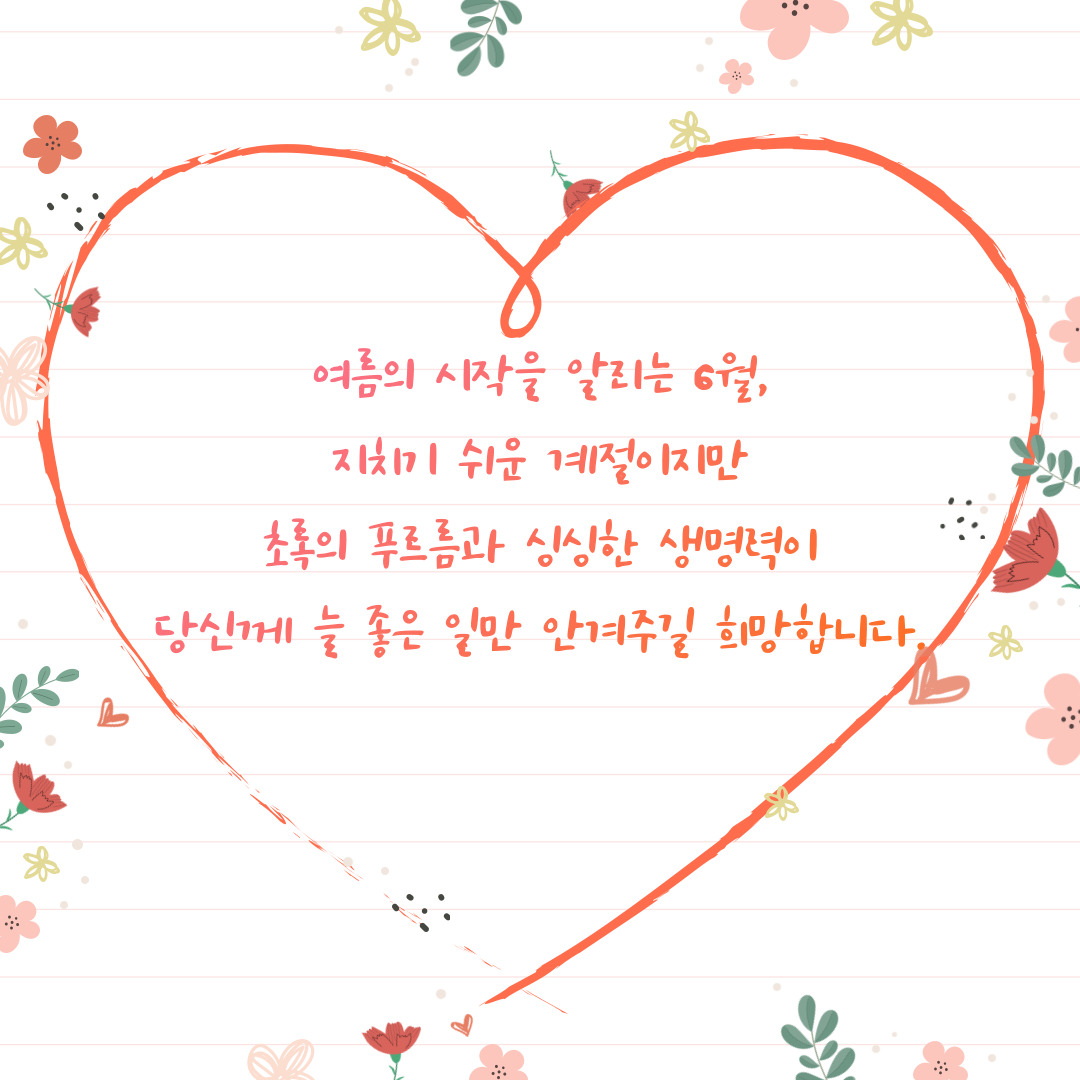 여름의 시작을 알리는 6월,
지치기 쉬운 계절이지만
초록의 푸르름과 싱싱한 생명력이
당신께 늘 좋은 일만 안겨주길 희망합니다.